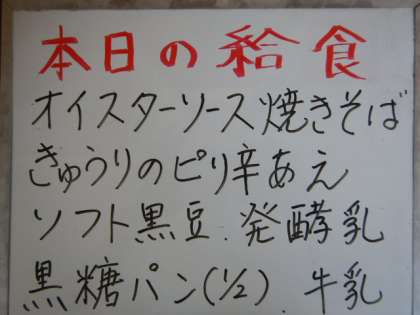 本日の給食
オイスターソース焼きそば
きゅうりのピリ辛あえ
ソフト黒豆.発酵乳
黒糖パン(1/2).牛乳